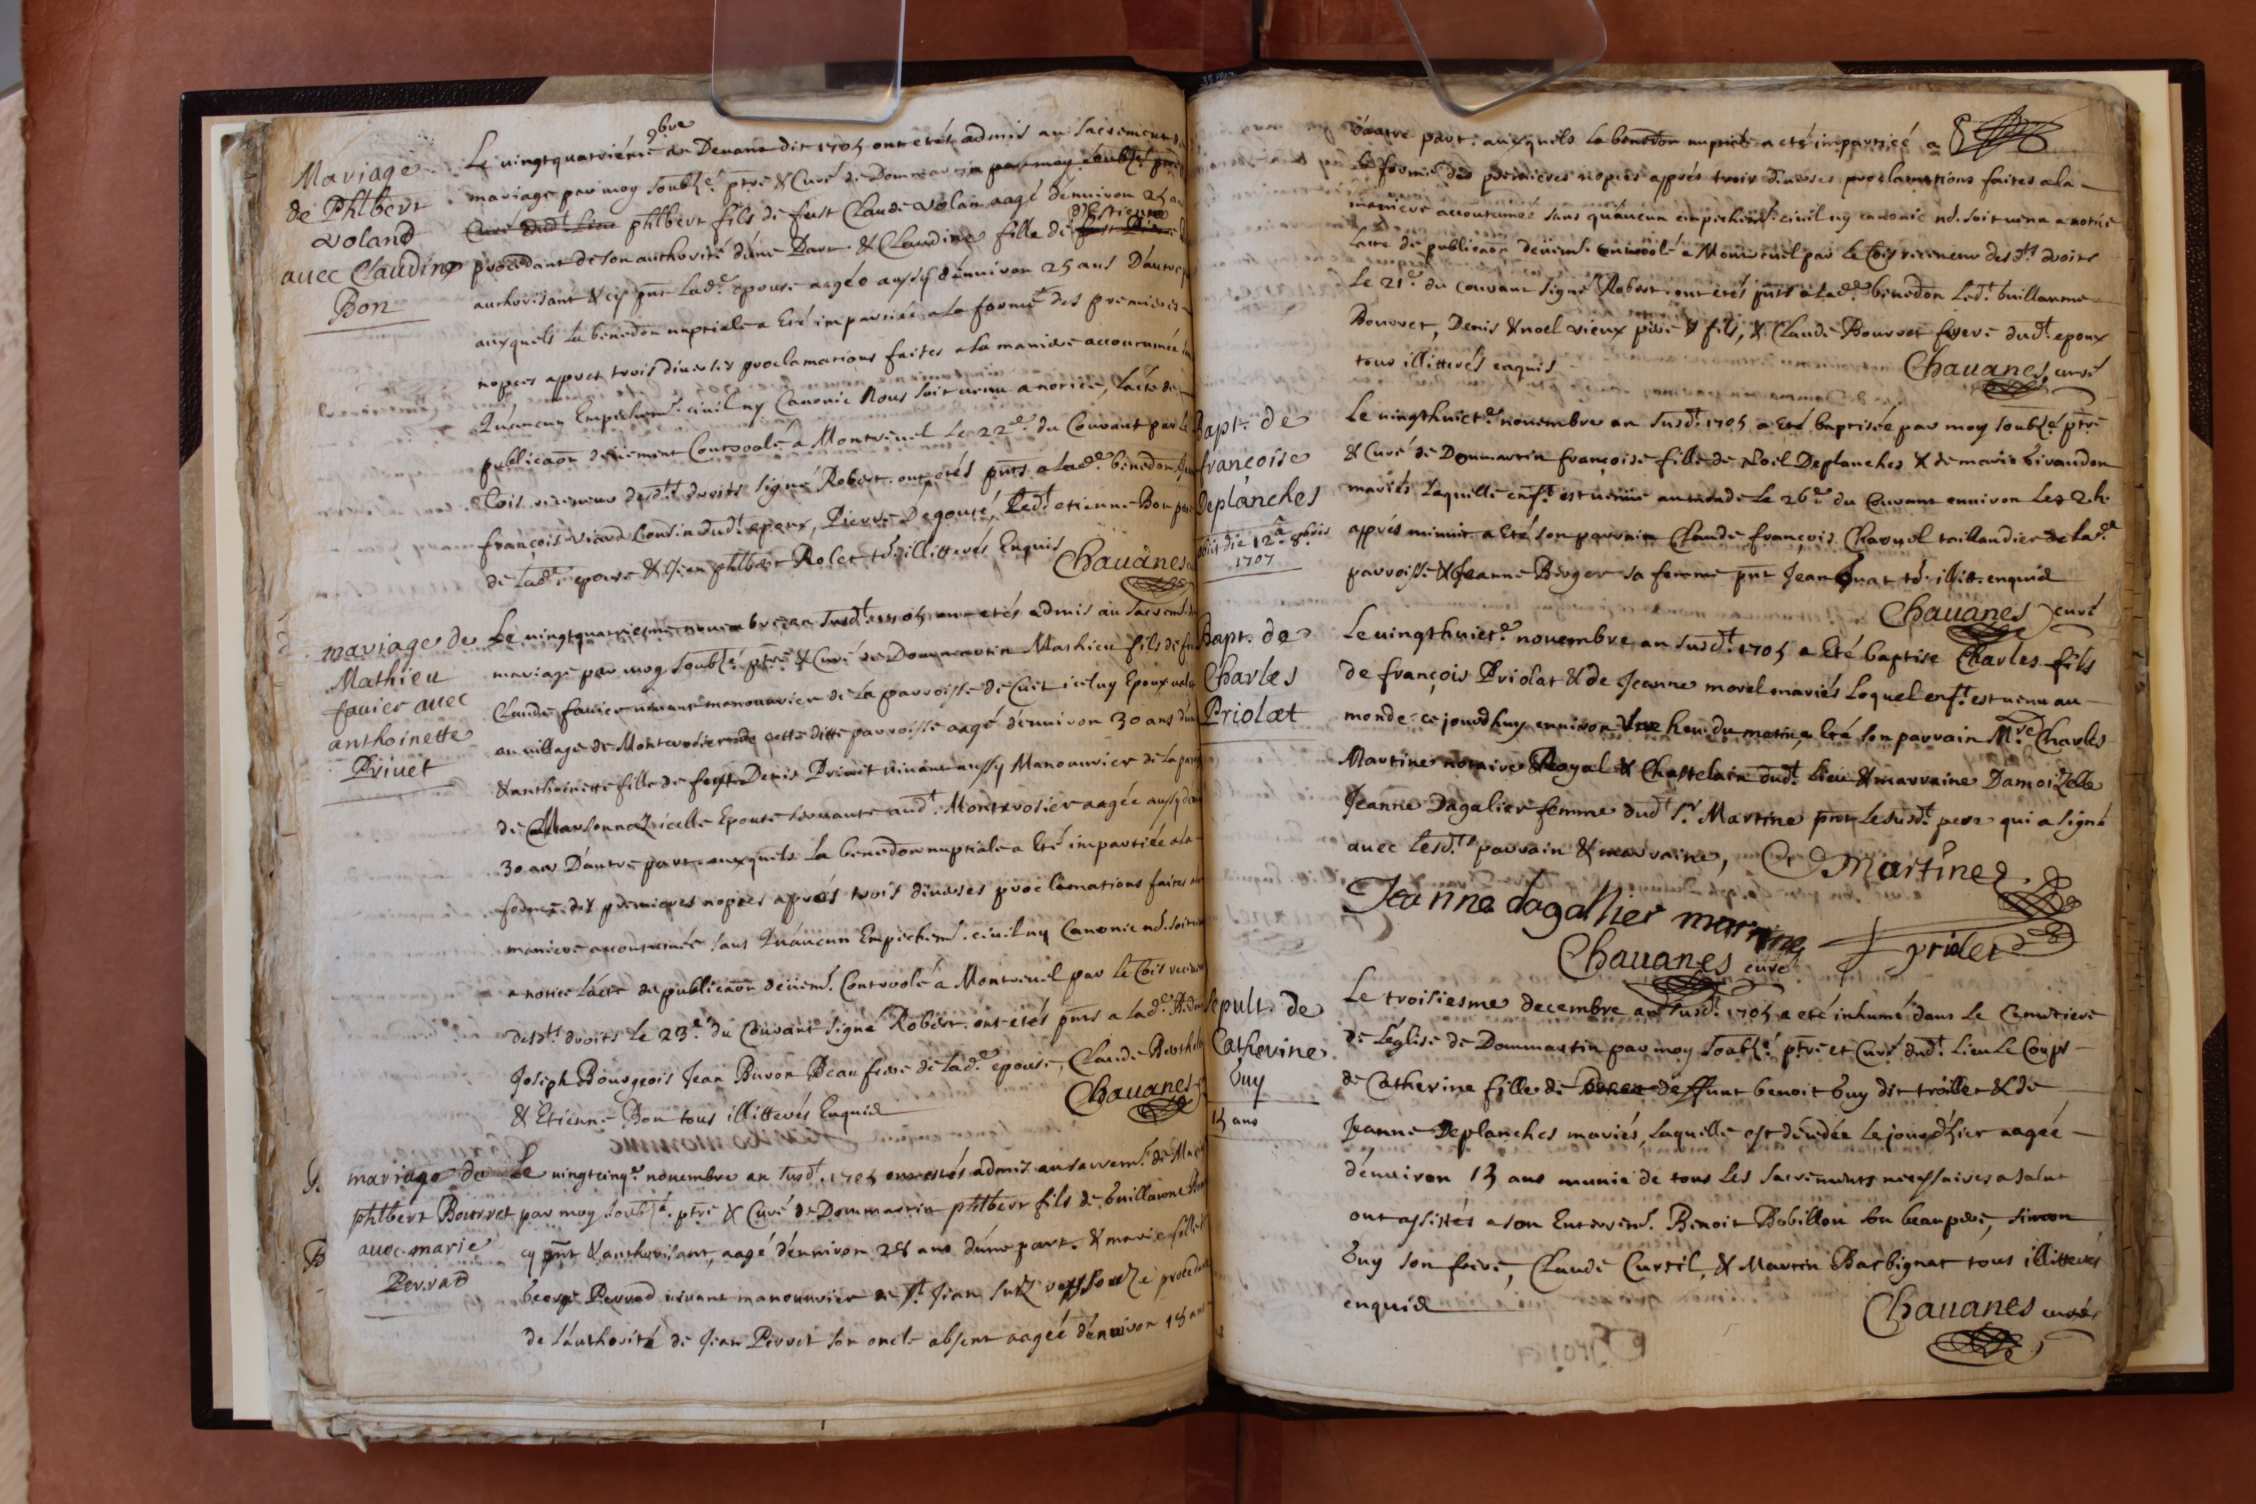 Mariage
de Phlbert
Voland
avec Claudine
Bon
Le vingtquatrieme 9bre an Devant dit 1705 ont etés admis au sacrement
mariage par moy soubzé. ptre & Curé de Dommartin par moy soubzé ptre
Curé dudt. Lieu phlbert fils de feut Claude Volan aagé dénuiron 25 an
procedant de son authorité dúne Part & Claudine fille de feut d'Estienne
authorisant & cy pnt Lade. epouse aagée aussy dénuiron 25 ans Dáutre p
auxquels La benedon nuptiale a Eté impartiée a La forme des premieres
nopces appret trois diuerses proclamations faites a La maniere accoutumée
Quáucun Empichemt. ciuil ny Canonic Nous soit venu a notice, Lácte de
publicaon deüement Controolé á Montreuil Le 22e. du Couvant par Le
Cois receueur desdts droits signé Robert. ont etés pnts a Lade benedon
françois viard Cousin dudt. epoux, Pierre Degouté, Ledt etienne Bon pere
de Lade. epouse & Jean phlbert Rolet ts. illitterés Enquis
Chauanes
mariage de
Mathieu
fauier auec
anthoinette
Priuet
Le vingtquatriesme nouembre an Susdt. 1705 ont etés admis au sacremt. de
mariage par moy soubzé. ptre & Curé de Dommartin Mathieu fils de feu
Claude fauier viuant manouurier de La parroisse de Cuet iceluy Epoux valet
au village de Montcrosier de cette ditte parroisse aagé dénuiron 30 ans dún
& anthoinette fille de feut Denis Priuet viuant aussy Manouurier de La par
de Marsonnaz icelle Epouse servante audt. Montcrosier aagée aussy d
30 ans Dáutre part auxquels La benedon nuptiale a Eté impartiée a La
forme des premieres nopces aprés trois diuerses proclamations faites
maniere accoutumée sans Quáucun Empichemt. ciuil ny Canonic nd. soit
a notice Lácte de publicaon deüemt. Controolé á Montreuil par Le Cois receueur
desdts droits Le 23e du Couvant signé Robert. ont etés pnts a Lade
Joseph Bourgeois Jean Buron Beaufrere de Lade. epouse, Claude Berthel
& Etienne Bon tous illitterés Enquis
Chauanes
mariage de
phlbert Bourret
auec marie
Perrad
Le vingtcinqe. nouembre an susdt. 1705 ont estés admis au sacremt. de Ma
par moy soubzé. ptre & Curé de Dommartin phlbert fils de Guillaume
cy pnt & authorisant, aagé dénuiron 28 ans dúne part. & marie fille
George Perrad viuant manouurier de St. Jean surz reyssouze procedant
de Láuthorité de Jean Perret son oncle absent aagée dénuiron 18 ans
Dáutre part. auxquels La benedon nuptiale a eté impartieé a
La forme des premieres nopces apprés trois diuerses proclamations faites a La
maniere accoutumeé sans quáucun empichemt. ciuil ny canonic nd. soit venu a notice
Lacte de publicaon deüemt. controolé a Montreuil par Le Cois receueur desdts droits
Le 21e. du couvant signé Robert. ont etés pnts a Lade benedon Ledt. Guillaume
Bourret, Denis & noel vieux pere & fils, & Claude Bourret frere dudt. epoux
tous illitterés enquis
Chauanes curé
Bapt. de
francoise
Deplanches
1707
Le vingthuicte. nouembre an Susdt. 1705 a Eté baptisée par moy soubzé ptre
& Curé de Dommartin françoise fille de Noel Deplanches & de marie Girandon
mariés Laquelle enft. est venüe au monde Le 26e du Couvant enuiron Les 2 h.
apprés minuit a Eté son parrain Claude françois Charuel taillandier de Lade
parroisse & Jeanne Berger sa femme pnt Jean ts. illitt. enquis
Chauanes curé
Bapt. de
Charles
Priolat
Le vingthuicte. nouembre an susdt. 1705 a Eté baptisé Charles fils
de françois Priolat & de Jeanne morel mariés Lequel enft. est venu au
monde ce jourdhuy enuiron Vne heu. du matin, a Eté son parrain Mre Charles
Martine notaire Royal & Chastelain dudt. Lieu & marraine Damoizelle
Jeanne Dagalier femme dudt Sr. Martine pnt Lesusdt. pere qui a signé
auec Lesdts parrain & marraine,
C Martine
Jeanne dagallier marrine
priolet
Chauanes curé
Sepult. de
Catherine
Guy
13 ans
Le troisiesme decembre an susdt. 1705 a eté inhumé dans Le Cemetiere
de Léglise de Dommartin par moy soubzé. ptre et Curé dudt. Lieu Le Corps
de Catherine fille de deffunt benoit Guy dit troillet & de
Jeanne Deplanches mariés, Laquelle est décedée Le jourdhier aagée
dénuiron 13 ans munie de tous Les sacrements necessaires a salut
ont assistés a son Enterremt. Benoit Bobillon son beaupere, simon
Guy son frere, Claude Curtil, & Martin Barbignat tous illitterés
enquis
Chauanes curé